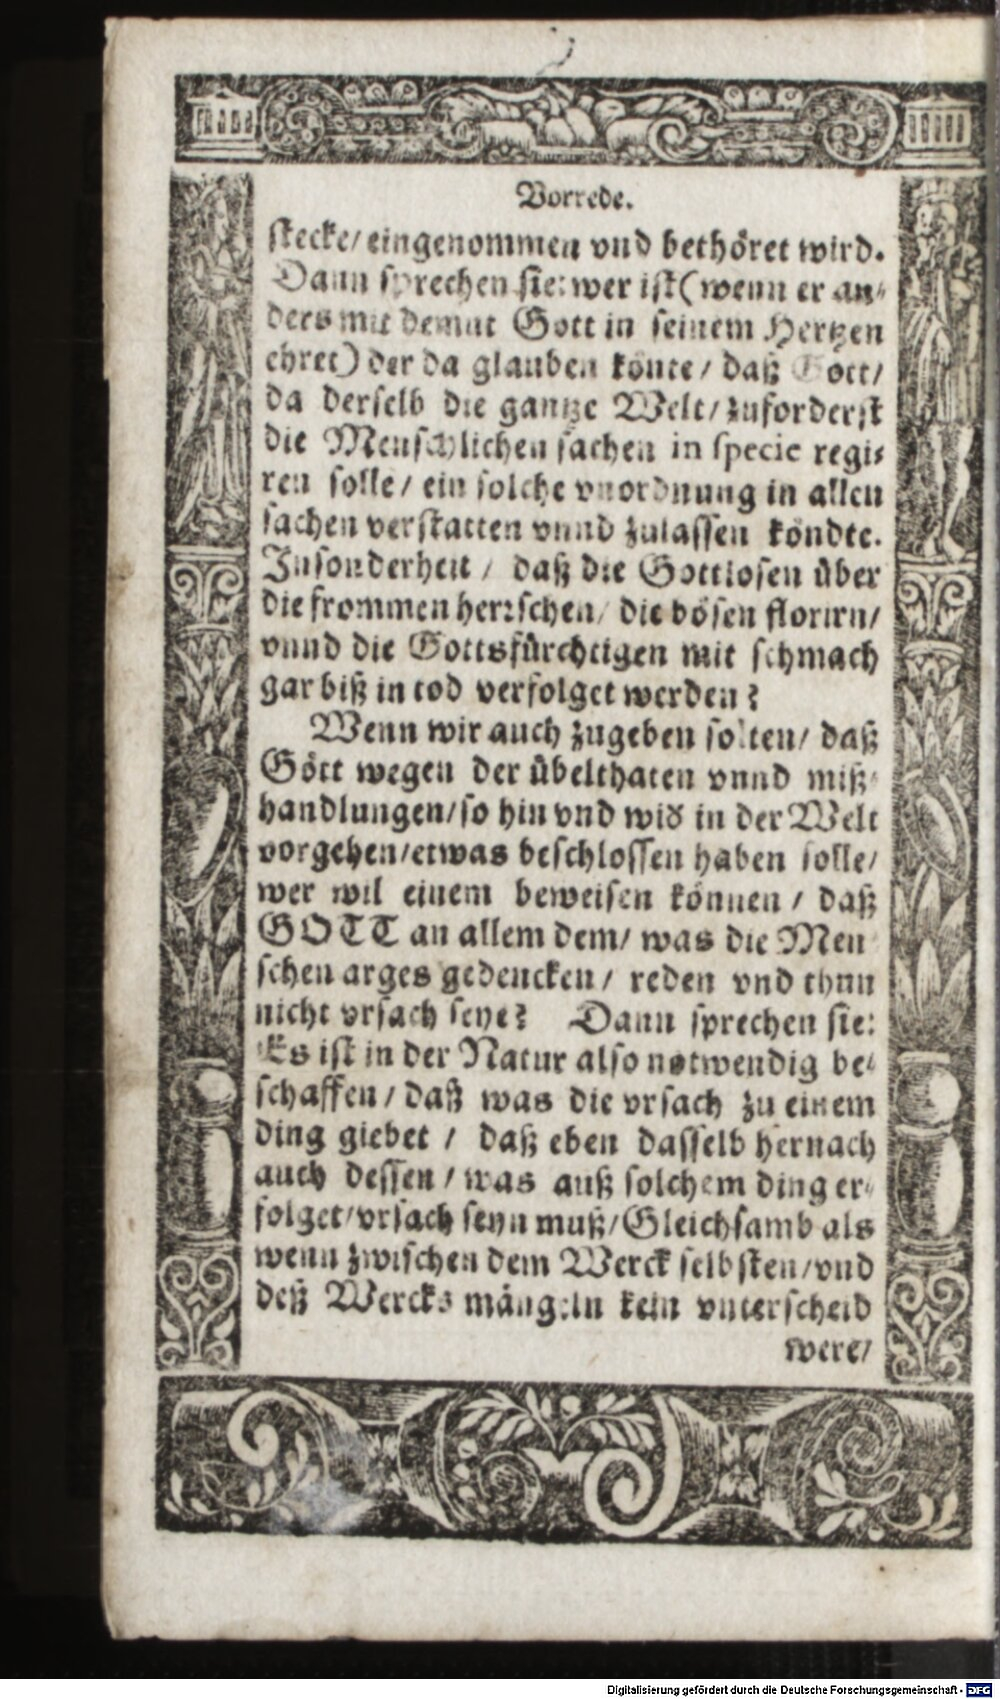 Vorrede.
stecke/ eingenommen vnd bethöret wird.
Dann sprechen sie: wer ist (wenn er an-
ders mit demut Gott in seinem Hertzen
ehret) der da glauben könte/ daß Gott/
da derselb die gantze Welt/ zuforderst
die Menschlichen sachen in specie regi-
ren solle/ ein solche vnordnung in allen
sachen verstatten vnnd zulassen köndte.
Insonderheit/ daß die Gottlosen über
die frommen herrschen/ die bösen florirn/
vnnd die Gottsfürchtigen mit schmach
gar biß in tod verfolget werden?
Wenn wir auch zugeben solten/ daß
Gott wegen der übelthaten vnnd miß-
handlungen/ so hin vnd wid in der Welt
vorgehen/ etwas beschlossen haben solle/
wer wil einem beweisen können/ daß
GOTT an allem dem/ was die Men
schen arges gedencken/ reden vnd thun
nicht vrsach seye? Dann sprechen sie:
Es ist in der Natur also notwendig be-
schaffen/ daß was die vrsach zu einem
ding giebet/ daß eben dasselb hernach
auch dessen/ was auß solchem ding er-
folget/ vrsach seyn muß/ Gleichsamb als
wenn zwischen dem Werck selbsten/ vnd
deß Wercks mängeln kein vnterscheid
were/
Digitalisierung gefördert durch die Deutsche Forschungsgemeinschaft - DFG